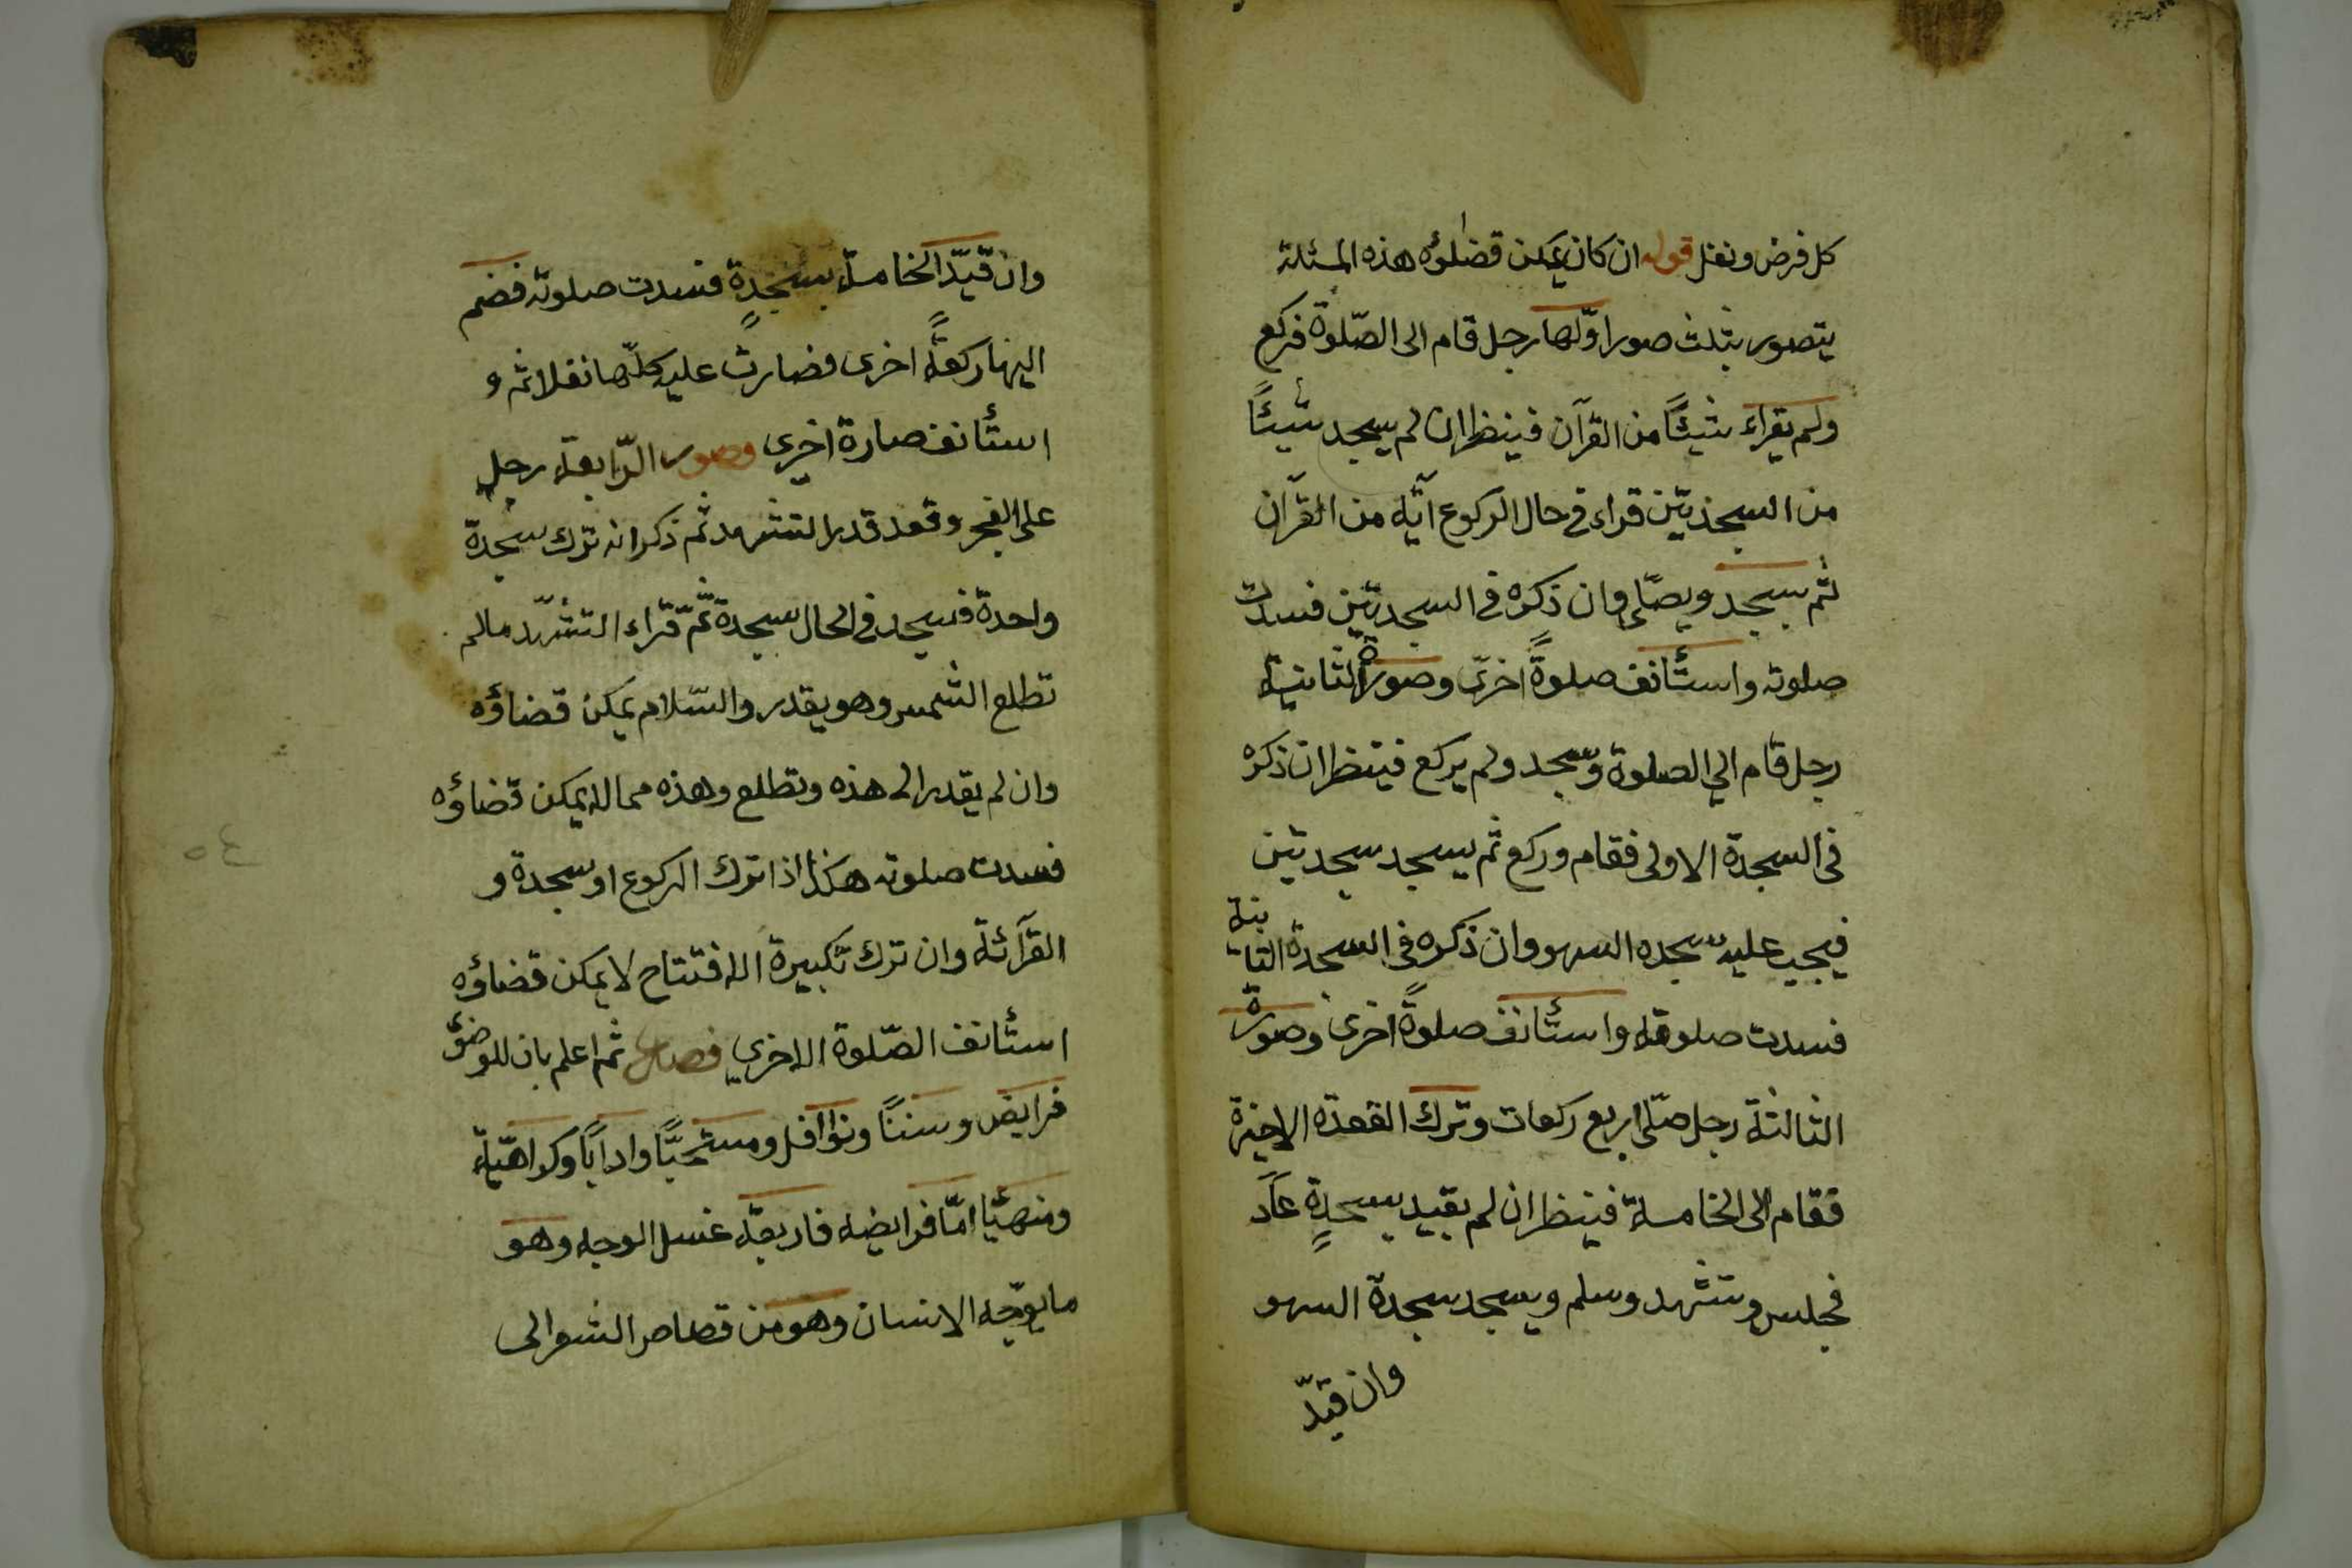 كل فرض ونفل قوله ان كان يمكن قضاؤه هذه المسئلة
يتصور بثلث صور اوّلها رجل قام الى الصّلوة فركع
ولم يقراء شيئًا من القرآن فينظر ان لم يسجد شيئًا
من السجدتين قراء فى حال الركوع آية من القرآن
ثم يسجد ويصلّى وان ذكره فى السجدتين فسدت
صلوته واستأنف صلوةً اخرى وصورة الثانية
رجل قام الي الصلوة وسجد ولم يركع فينظر ان ذكره
فى السجدة الاولى فقام وركع ثم يسجد سجدتين
فيجب عليه سجده السهو وان ذكره فى السجدة الثانية
فسدت صلوته واستأنف صلوةً اخرى وصورة
الثالثة رجل صلّى اربع ركعات وترك القعدة الاخيرة
فقام الى الخامسة فينظر ان لم يقيد بسجدةٍ عاد
فجلس وتشهد وسلم ويسجد سجدة السهو
وان قيّد
وان قيّد الخامسة بسجدةٍ فسدت صلوته فضم
اليها ركعةً اخرى فصارت عليه كلّها نفلا ثم و
استأنف صارة اخرى وصور الرّابعة رجل
على الفجر وقعد قدر التشهد ثم ذكر انه ترك سجدة
واحدة فسجد فى الحال سجدة ثمّ قراء التشهّد مالم
تطلع الشمس وهو يقدر والسّلام يمكن قضاؤه
وان لم يقدر الى هذه وتطلع وهذه مما لا يمكن قضاؤه
فسدت صلوته هكذا اذا ترك الركوع او سجدة و
القرآئة وان ترك تكبيرة الافتتاح لا يمكن قضاؤه
استأنف الصّلوة الاخري فصل ثم اعلم بان للوضؤ
فرايض وسننًا ونوافل ومستحبًّا وادابًا وكراهيّة
ومنهيًّا امّا فرايضه فاربعة غسل الوجه وهو
ما يوجّه الانسان وهو من قصاص الشعر الى
٥٤